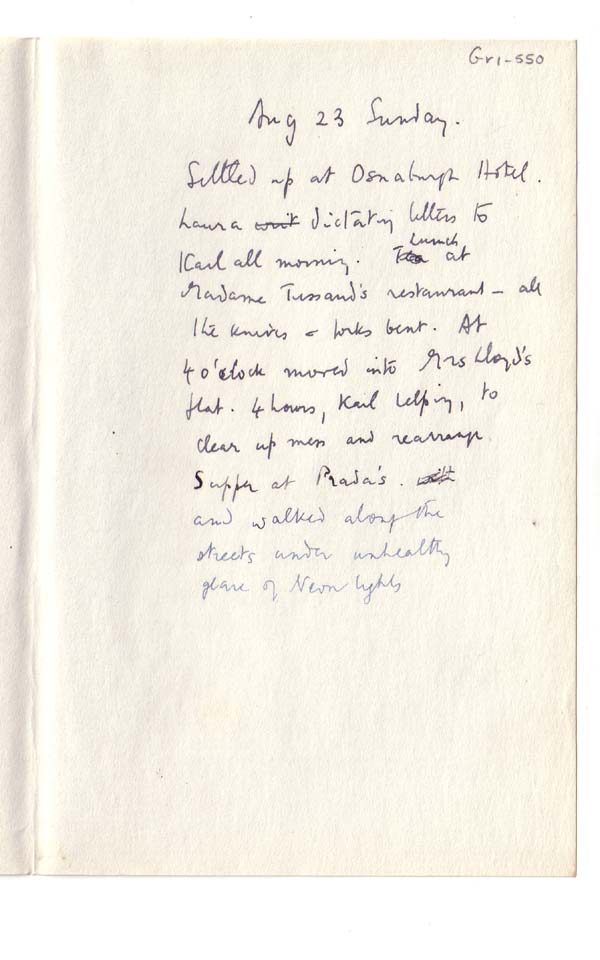 Gri-550
Aug 23 Sunday.
Settled up at Osnaburgh Hotel.
Laura writ dictating letters to
Karl all morning. Tea Lunch at
Madame Tussaud's restaurant – all
the knives & forks bent. At
4 o'clock moved into Mrs Lloyd's
flat. 4 hours, Karl helping, to
clear up mess and rearrange
Supper at Prada's. with
and walked along the
streets under unhealthy
glare of Neon lights